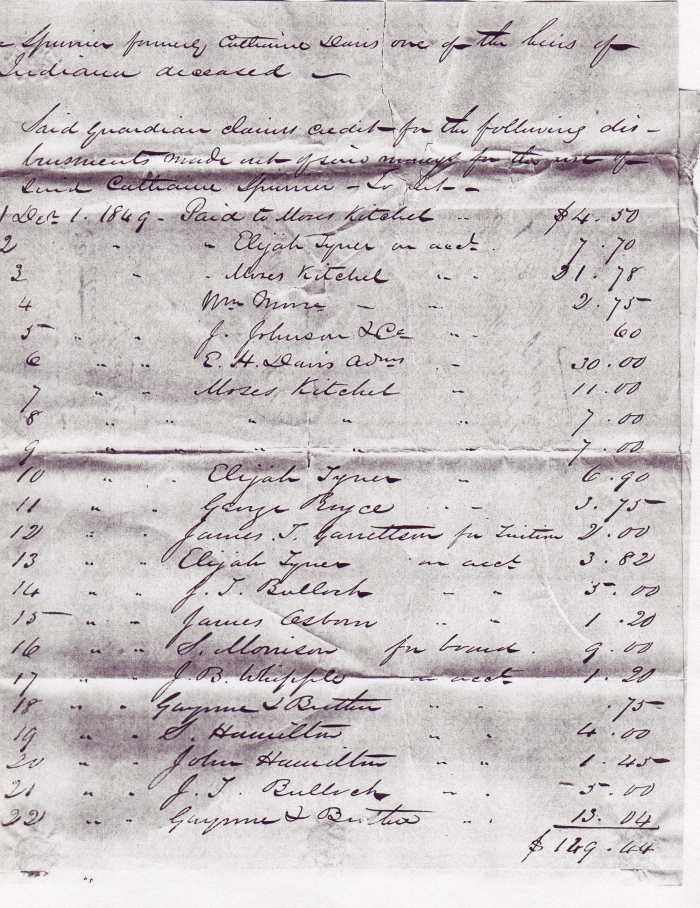 Spurrier formerly Catharine Davis one of the heirs of
Indiana deceased
Said guardian claims credit for the following dis-
bursments made out of said moneys for the use of
said Catharine Spurrier - To wit -
1 Dec 1. 1849 - Paid to Moses Kitchel " $4.50
2 " " Elijah Tyner on acct. 7.70
3 " Moses Kitchel " " 21.78
4 Wm Moore - " 2.75
5 " " J. Johnson & Co " " 60
6 " " E. H. Davis Admr " 30.00
7 " " Moses Kitchel " 11.00
8 " " " " 7.00
9 " " " " 7.00
10 " " Elijah Tyner " 6.90
11 " " George Bryce " 3.75
12 " " James T. Garrettson for Tuition 2.00
13 " " Elijah Tyner on acct 3.82
14 " " J. T. Bulloch " " 5.00
15 " " James Osborn " " 1.20
16 " " S. Morrison for board. 9.00
17 " " J. B. Whipple on acct 1.20
18 " " Gwynne & " " .75
19 " " S. Hamilton " " 4.00
20 " " John Hamilton " " 1.45
21 " " J. T. Bulloch " " 5.00
22 " " Gwynne & " " 13.04
$149.44